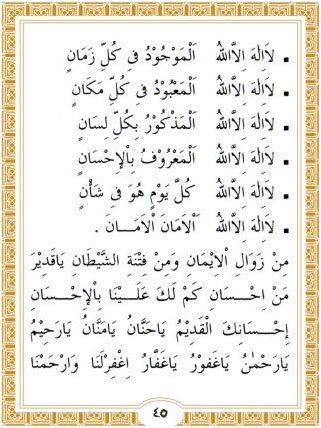 . لَااِلٰهَ اِلَّااللهُ اَلْمَوْجُودُ فِى كُلِّ زَمَانٍ
. لَااِلٰهَ اِلَّااللهُ اَلْمَعْبُودُ فِى كُلِّ مَكَانٍ
. لَااِلٰهَ اِلَّااللهُ اَلْمَذْكُورُ بِكُلِّ لِسَانٍ
. لَااِلٰهَ اِلَّااللهُ اَلْمَعْرُوفُ بِالْاِحْسَانِ
. لَااِلٰهَ اِلَّااللهُ كُلَّ يَوْمٍ هُوَ فِى شَأْنٍ
. لَااِلٰهَ اِلَّااللهُ اَلْاَمَانَ الْاَمَـــانَ .
مِنْ زَوَالِ الْاِيْمَانِ وَمِنْ فِتْنَةِ الشَّيْطَانِ يَاقَدِيْرَ
مَنْ اِحْسَـانِ كَمْ لَكَ عَلَـــيْنَا بِالْاِحْـسَـــانِ
اِحْـسَـانِكَ الْقَدِيْمُ يَاحَنَّانُ يَامَنَّانُ يَارَحِيْمُ
يَارَحْمٰنُ يَاغَفُورُ يَاغَفَّارُ اِغْفِرْلَنَا وَارْحَمْنَا
٤٥